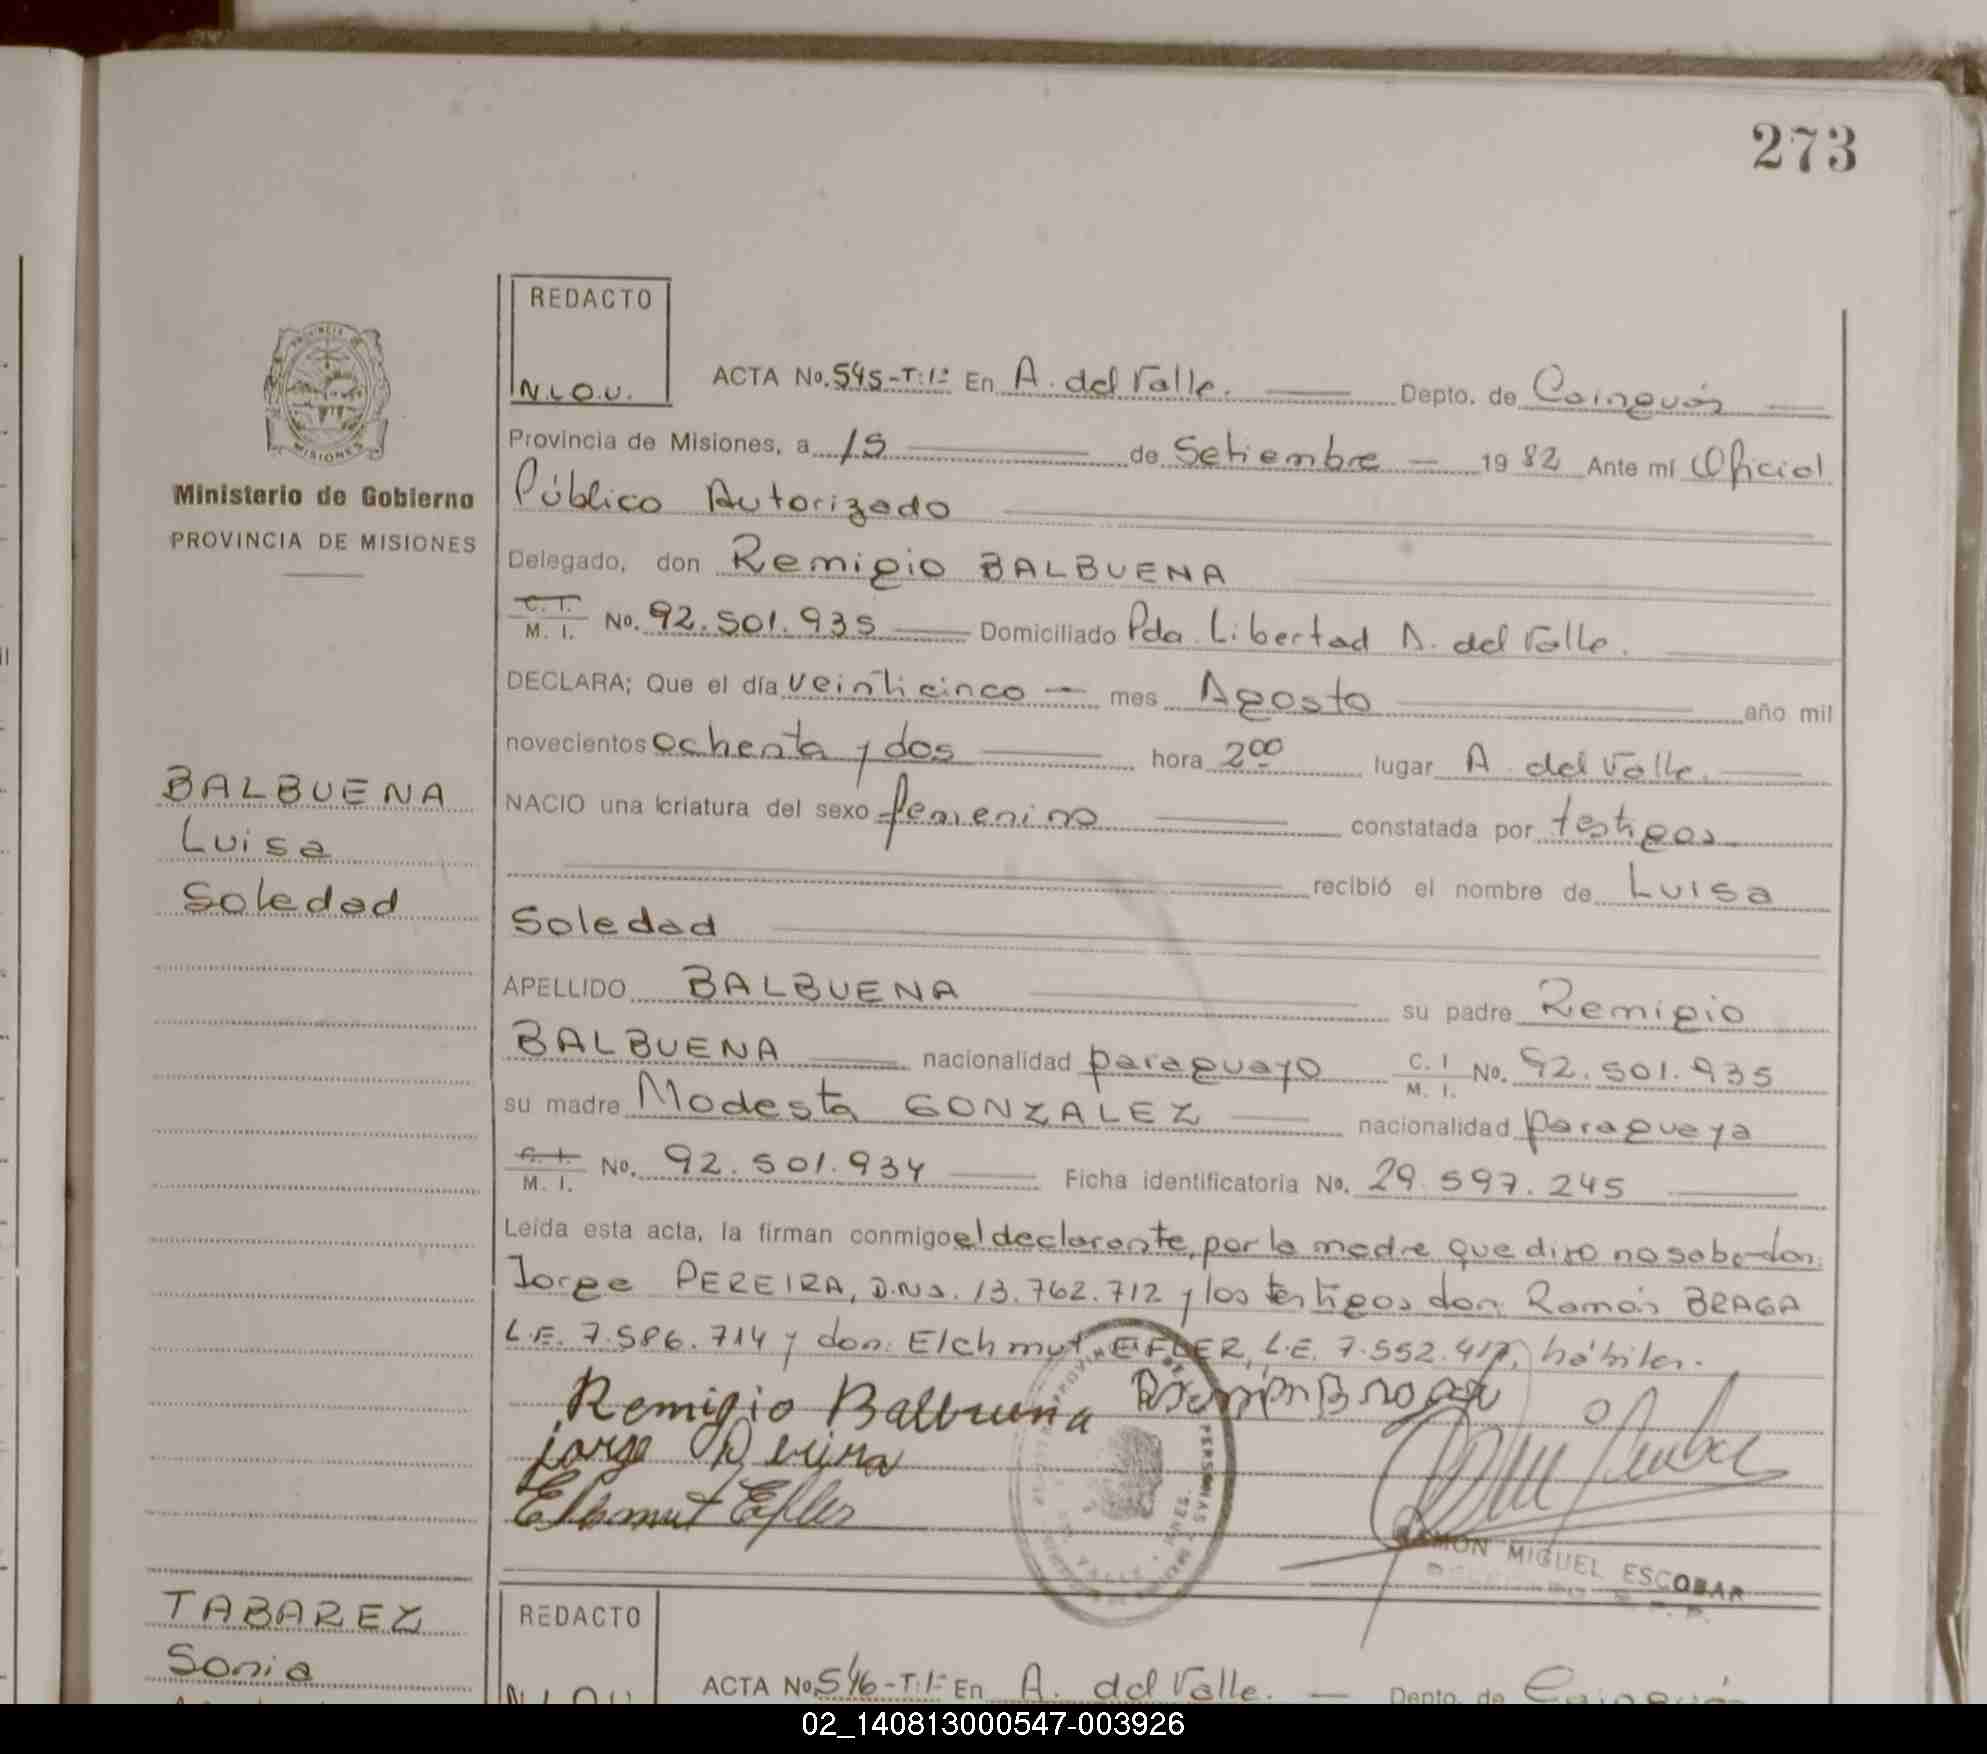 273
REDACTO
N.L.O.U.
ACTA No. 545-T:1º En A. del Valle. Depto. de Cainguás
Provincia de Misiones, a 15 de Setiembre 1982 Ante mí Oficial
Público Autorizado
Delegado, don Remigio BALBUENA
C. I. M. I. No. 92.501.935 Domiciliado Pda. Libertad A. del Valle.
DECLARA; Que el día veinticinco mes Agosto año mil
novecientos ochenta y dos hora 2 00 lugar A. del Valle.
NACIO una criatura del sexo femenino constatada por testigos
recibió el nombre de Luisa
Soledad
APELLIDO BALBUENA su padre Remigio
BALBUENA nacionalidad paraguayo C. I M. I. No. 92.501.935
su madre Modesta GONZALEZ nacionalidad paraguaya
C. I. M. I. No. 92.501.934 Ficha identificatoria No. 29.597.245
Leída esta acta, la firman conmigo el declarante, por la madre que dijo no saber don:
Jorge PEREIRA, D.N.I. 13.762.712 y los testigos don: Ramón BRAGA
L.E. 7.586.714 y don: Elchmut EFLER, L.E. 7.552.417, hábiles.
Remigio Balbuena
Elchmut Efler
RAMON MIGUEL ESCOBAR
PROVINCIA DE
MISIONES
Ministerio de Gobierno
PROVINCIA DE MISIONES
BALBUENA
Luisa
Soledad
TABAREZ
Sonia
REDACTO
N.L.O.U.
ACTA No. 546-T:1º En A. del Valle. Depto. de Cainguás
02_140813000547-003926